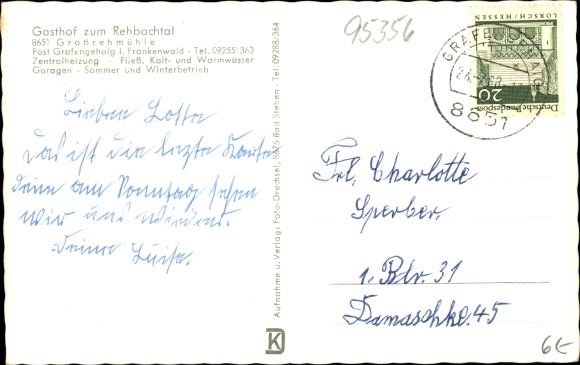 Gasthof zum Rehbachtal
8651 Großrehmühle
Post Grafengehaig i. Frankenwald - Tel. 09255/363
Zentralheizung - Fließ. Kalt- und Warmwasser
Garagen - Sommer und Winterbetrieb
95356
Lieben Lotte
Das ist die letzte Karte
denn am Sonntag sehen
wir uns wieder.
Deine Luise.
Aufnahme u. Verlag: Foto-Drechsel, 8675 Bad Steben - Tel. 09288/364
DK
LORSCH/HESSEN
20
Deutsche Bundespost
8651
Frl. Charlotte
Sperber.
1. Blr. 31
Damaschke. 45
6€